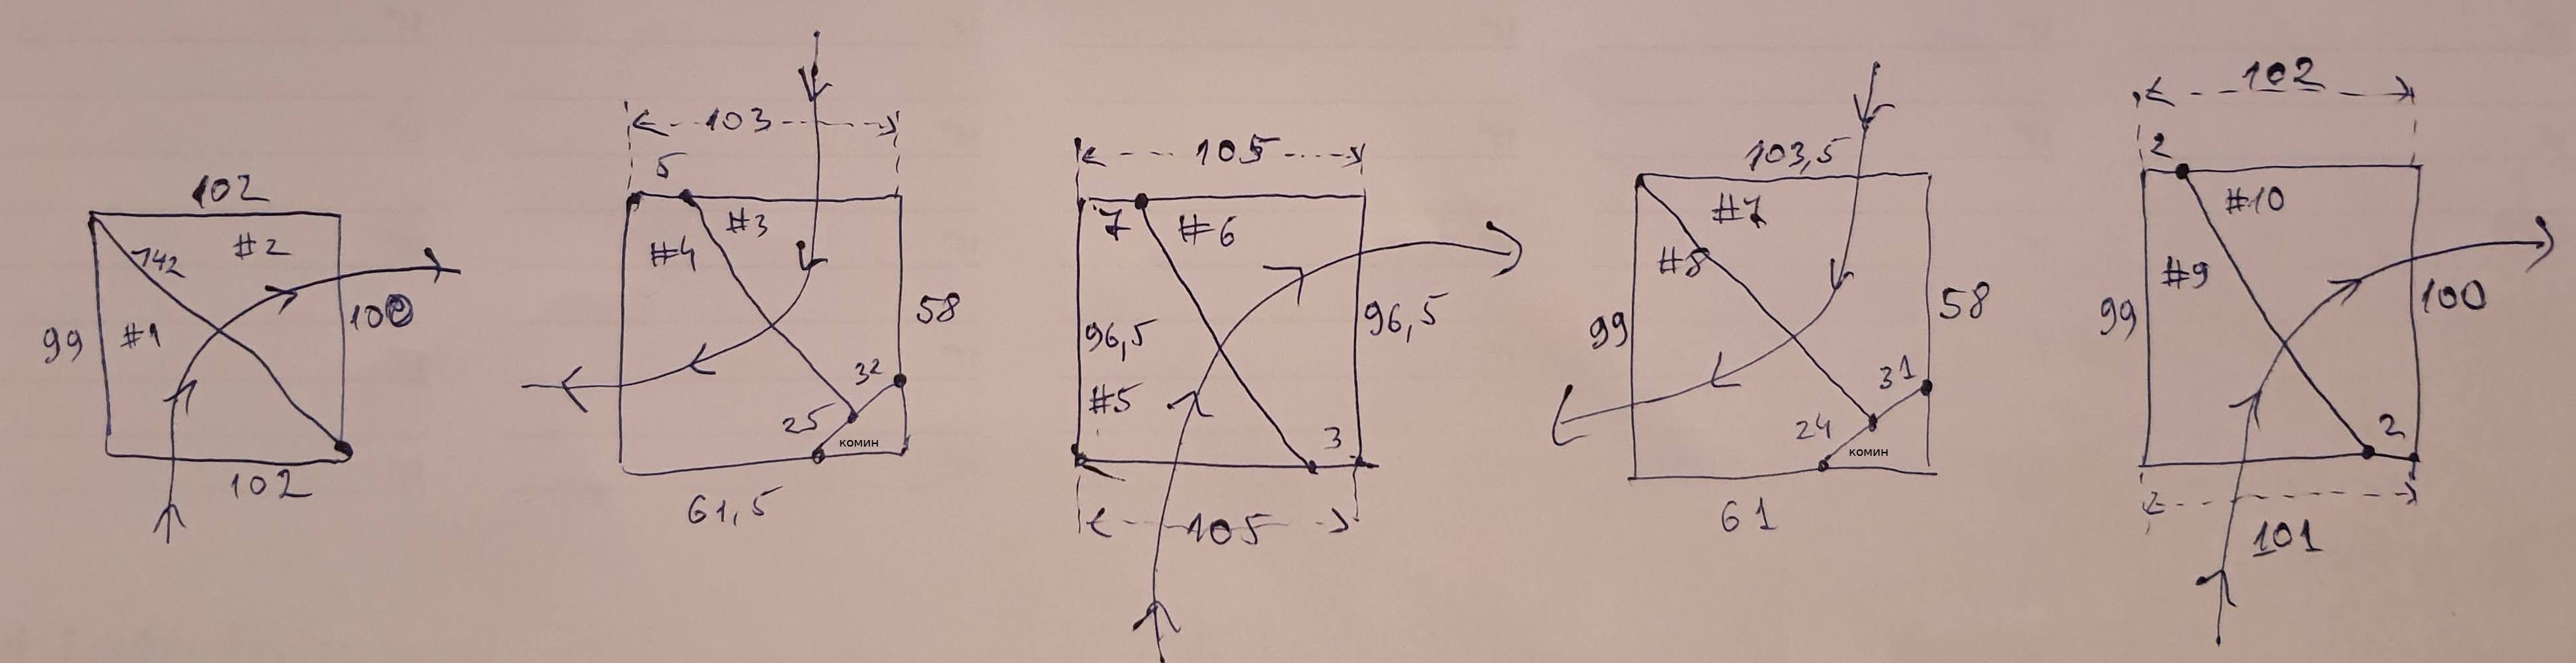 102
142
#2
#1
99
100
102
103
5
#3
#4
58
32
25
комин
61,5
105
7
#6
96,5
96,5
#5
3
105
103,5
#7
#8
99
58
31
24
комин
61
102
2
#10
#9
99
100
2
101